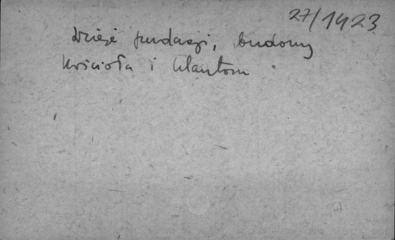 27/1923
dzieje fundacji, budowy
kościoła i klasztoru